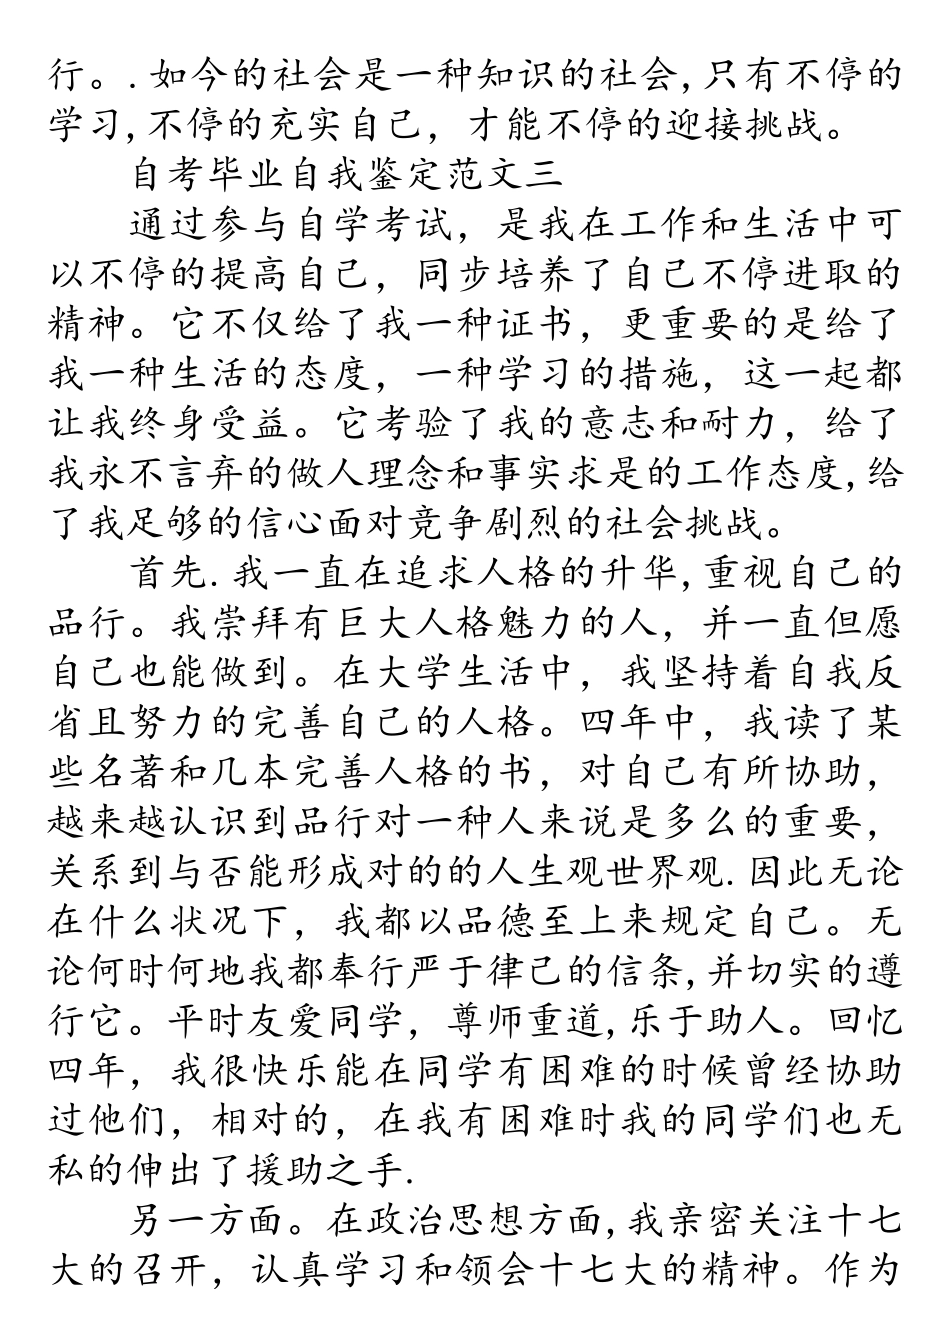 行。.如今的社会是一种知识的社会,只有不停的
学习,不停的充实自己，才能不停的迎接挑战。
自考毕业自我鉴定范文三
通过参与自学考试，是我在工作和生活中可
以不停的提高自己，同步培养了自己不停进取的
精神。它不仅给了我一种证书，更重要的是给了
我一种生活的态度，一种学习的措施，这一起都
让我终身受益。它考验了我的意志和耐力，给了
我永不言弃的做人理念和事实求是的工作态度,给
了我足够的信心面对竞争剧烈的社会挑战。
首先.我一直在追求人格的升华,重视自己的
品行。我崇拜有巨大人格魅力的人，并一直但愿
自己也能做到。在大学生活中，我坚持着自我反
省且努力的完善自己的人格。四年中，我读了某
些名著和几本完善人格的书，对自己有所协助，
越来越认识到品行对一种人来说是多么的重要，
关系到与否能形成对的的人生观世界观.因此无论
在什么状况下，我都以品德至上来规定自己。无
论何时何地我都奉行严于律己的信条,并切实的遵
行它。平时友爱同学，尊师重道,乐于助人。回忆
四年，我很快乐能在同学有困难的时候曾经协助
过他们，相对的，在我有困难时我的同学们也无
私的伸出了援助之手.
另一方面。在政治思想方面,我亲密关注十七
大的召开，认真学习和领会十七大的精神。作为